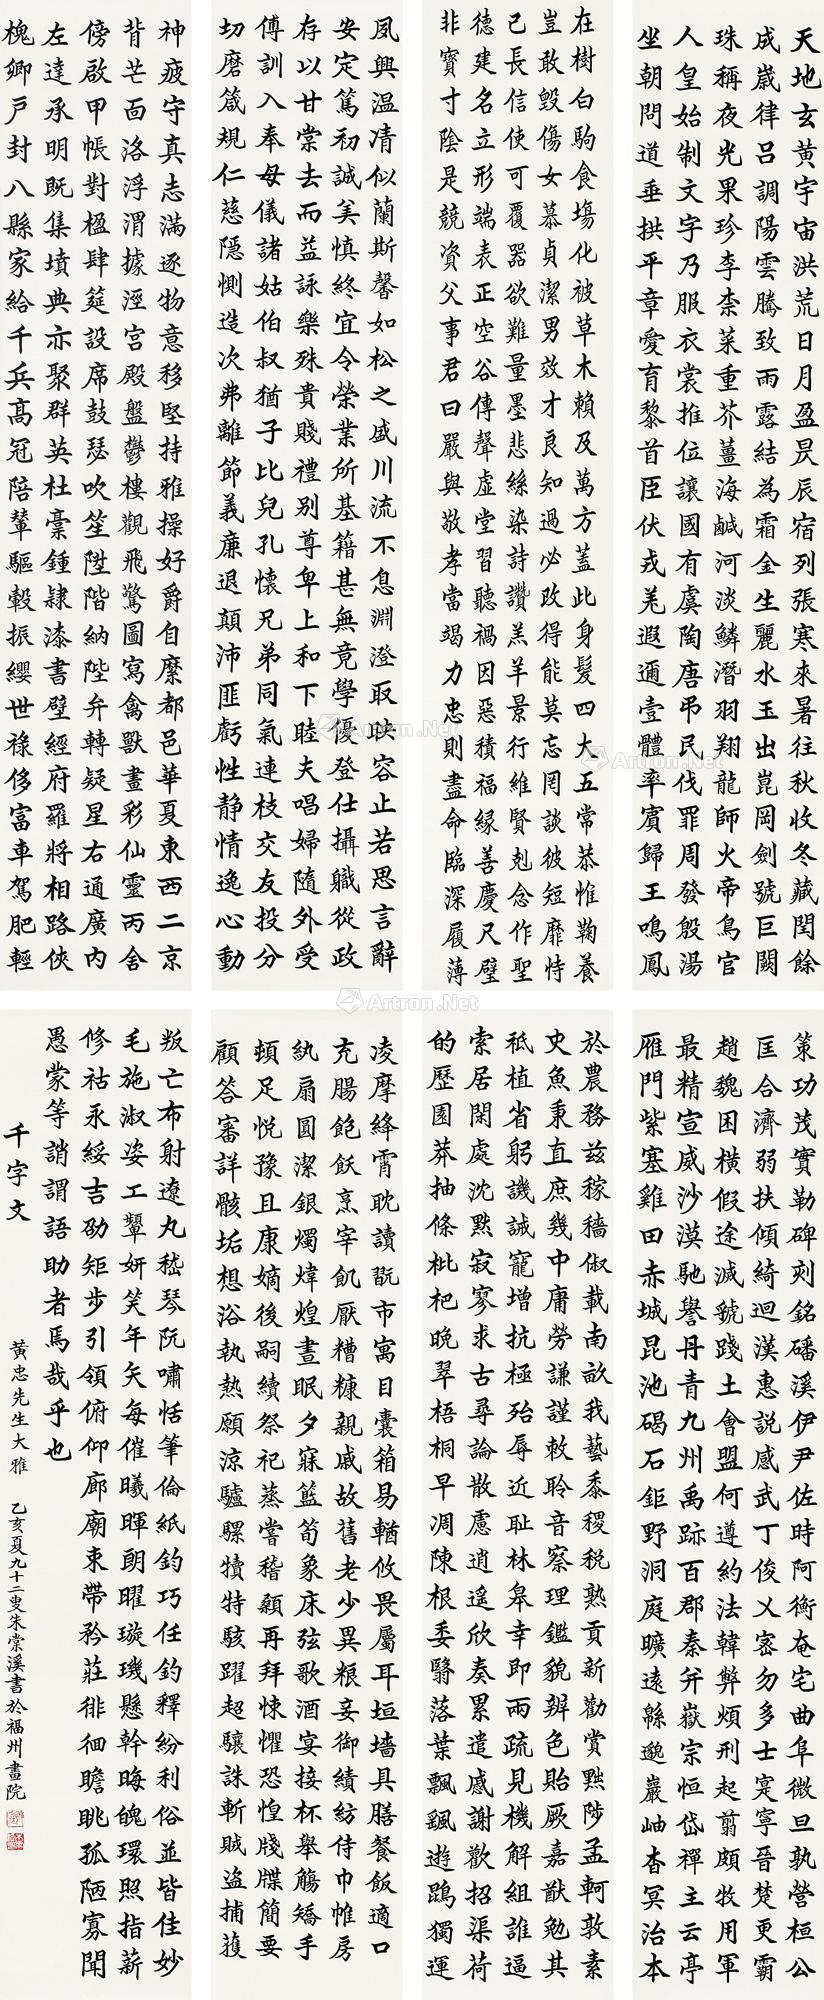 天地玄黃宇宙洪荒日月盈昃辰宿列張寒來暑往秋收冬藏閏餘
成歲律呂調陽雲騰致雨露結為霜金生麗水玉出崑岡劍號巨闕
珠稱夜光果珍李柰菜重芥薑海鹹河淡鱗潛羽翔龍師火帝鳥官
人皇始制文字乃服衣裳推位讓國有虞陶唐弔民伐罪周發殷湯
坐朝問道垂拱平章愛育黎首臣伏戎羌遐邇壹體率賓歸王鳴鳳
在樹白駒食場化被草木賴及萬方蓋此身髮四大五常恭惟鞠養
豈敢毀傷女慕貞潔男效才良知過必改得能莫忘罔談彼短靡恃
己長信使可覆器欲難量墨悲絲染詩讚羔羊景行維賢剋念作聖
德建名立形端表正空谷傳聲虛堂習聽禍因惡積福緣善慶尺璧
非寶寸陰是競資父事君曰嚴與敬孝當竭力忠則盡命臨深履薄
夙興温凊似蘭斯馨如松之盛川流不息淵澄取映容止若思言辭
安定篤初誠美慎終宜令榮業所基籍甚無竟學優登仕攝職從政
存以甘棠去而益詠樂殊貴賤禮別尊卑上和下睦夫唱婦隨外受
傅訓入奉母儀諸姑伯叔猶子比兒孔懷兄弟同氣連枝交友投分
切磨箴規仁慈隱惻造次弗離節義廉退顛沛匪虧性静情逸心動
神疲守真志滿逐物意移堅持雅操好爵自縻都邑華夏東西二京
背芒面洛浮渭據涇宮殿盤鬱樓觀飛驚圖寫禽獸畫彩仙靈丙舍
傍啟甲帳對楹肆筵設席鼓瑟吹笙陞階納陛弁轉疑星右通廣內
左達承明既集墳典亦聚群英杜稾鍾隸漆書壁經府羅將相路俠
槐卿戶封八縣家給千兵高冠陪輦驅轂振纓世祿侈富車駕肥輕
策功茂實勒碑刻銘磻溪伊尹佐時阿衡奄宅曲阜微旦孰營桓公
匡合濟弱扶傾綺迴漢惠説感武丁俊乂密勿多士寔寧晉楚更霸
趙魏困橫假途滅虢踐土會盟何遵約法韓弊煩刑起翦頗牧用軍
最精宣威沙漠馳譽丹青九州禹跡百郡秦并嶽宗恒岱禪主云亭
雁門紫塞雞田赤城昆池碣石鉅野洞庭曠遠緜邈巖岫杳冥治本
於農務茲稼穡俶載南畝我藝黍稷稅熟貢新勸賞黜陟孟軻敦素
史魚秉直庶幾中庸勞謙謹敕聆音察理鑑貌辨色貽厥嘉猷勉其
祗植省躬譏誡寵增抗極殆辱近耻林皋幸即兩疏見機解組誰逼
索居閑處沈默寂寥求古尋論散慮逍遙欣奏累遣慼謝歡招渠荷
的歷園莽抽條枇杷晚翠梧桐早凋陳根委翳落葉飄颻遊鵾獨運
凌摩絳霄耽讀翫市寓目囊箱易輶攸畏屬耳垣墻具膳餐飯適口
充腸飽飫烹宰飢厭糟糠親戚故舊老少異粮妾御績紡侍巾帷房
紈扇圓潔銀燭煒煌晝眠夕寐籃筍象床弦歌酒宴接杯舉觴矯手
頓足悦豫且康嫡後嗣續祭祀蒸嘗稽顙再拜悚懼恐惶牋牒簡要
顧答審詳骸垢想浴執熱願涼驢騾犢特駭躍超驤誅斬賊盜捕獲
叛亡布射遼丸嵇琴阮嘯恬筆倫紙鈞巧任釣釋紛利俗並皆佳妙
毛施淑姿工顰妍笑年矢每催曦暉朗曜璇璣懸斡晦魄環照指薪
修祜永綏吉劭矩步引領俯仰廊廟束帶矜莊徘徊瞻眺孤陋寡聞
愚蒙等誚謂語助者焉哉乎也
千字文
黃忠先生大雅 乙亥夏九十二叟朱棠溪書於福州畫院
Artron.Net
Artron.Net
Artron.Net